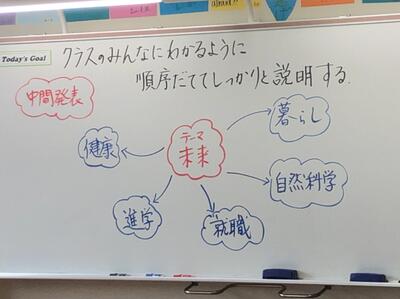 Today's Goal
クラスのみんなにわかるように
順序だててしっかりと説明する.
中間発表
テーマ
未来
暮らし
健康
自然科学
進学
就職